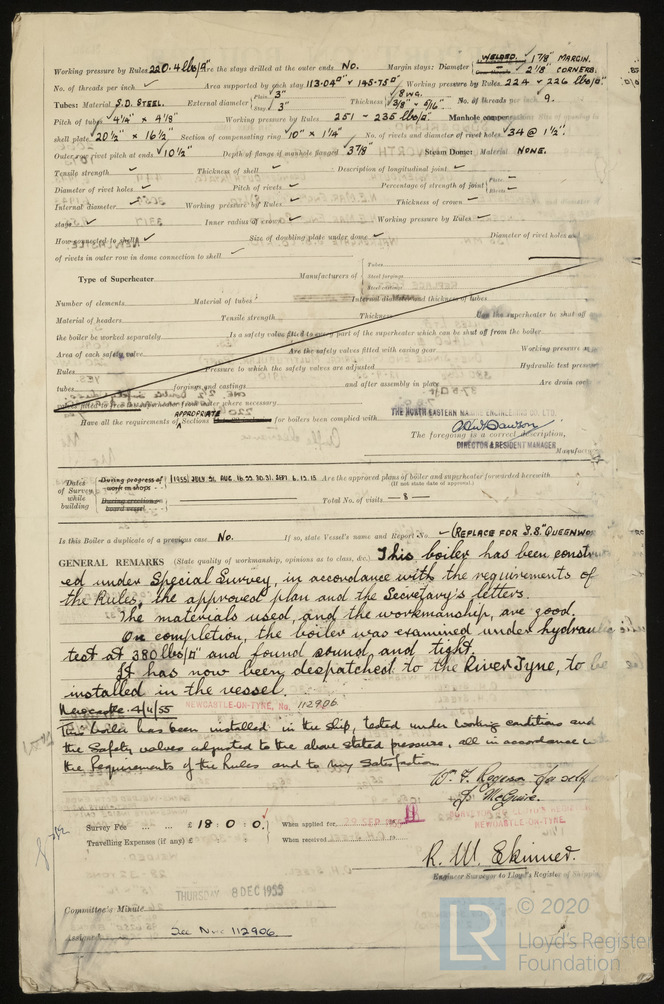 Working pressure by Rules 220.4 lbs/□" Are the stays drilled at the outer ends No. Margin stays: Diameter WELDED. 1 7/8" MARGIN. 2 1/8" CORNERS.
No. of threads per inch Area supported by each stay 113.04□" × 145.75□" Working pressure by Rules 224 × 226 lbs/□"
Tubes: Material S.D. STEEL. External diameter Plain 3" Stay 3" Thickness 8 WG. 3/8" × 5/16" No. of threads per inch 9.
Pitch of tubes 4 1/4" × 4 1/8" Working pressure by Rules 251 - 235 lbs/□" Manhole compen
shell plate 20 1/2" × 16 1/2" Section of compensating ring 10" × 1 1/4" No. of rivets and diameter of rivet holes 34 @ 1 1/2".
Outer row rivet pitch at ends 10 1/2" Depth of flange if manhole flanged 3 7/8" Steam Dome: Material NONE.
Tensile strength Thickness of shell Description of longitudinal joint
Diameter of rivet holes Pitch of rivets Percentage of strength of joint Plate Rivets
Internal diameter Working pressure by Rules Thickness of crown
stays Inner radius of crown Working pressure by Rules
How connected to shell Size of doubling plate under dome Diameter of rivet holes and
of rivets in outer row in dome connection to shell
Type of Superheater Manufacturers of Tubes Steel forgings Steel castings
Number of elements Material of tubes Internal diameter and thickness of tubes
Material of headers Tensile strength Thickness Can the superheater be shut off
the boiler be worked separately Is a safety valve fitted to every part of the superheater which can be shut off from the boiler
Area of each safety valve Are the safety valves fitted with easing gear Working pressure as
Rules Pressure to which the safety valves are adjusted Hydraulic test pressure
tubes forgings and castings and after assembly in place Are drain cocks
valves fitted to free the superheater from water where necessary
Have all the requirements of APPROPRIATE Sections for boilers been complied with
THE NORTH EASTERN MARINE ENGINEERING CO. LTD.
The foregoing is a correct description,
DIRECTOR & RESIDENT MANAGER
Manufacturer
Dates of Survey while building
During progress of work in shops (1955) JULY. 21. AUG. 16. 22. 30. 31. SEPT. 6. 13. 15
Are the approved plans of boiler and superheater forwarded herewith
(If not state date of approval.)
During erection on board vessel
Total No. of visits — 8 —
Is this Boiler a duplicate of a previous case No. If so, state Vessel's name and Report No (REPLACE FOR S.S. "QUEENWO
GENERAL REMARKS (State quality of workmanship, opinions as to class, &c.) This boiler has been constru
ed under Special Survey, in accordance with the requirements of
the Rules, the approved plan and the Secretary's letters.
The materials used, and the workmanship, are good.
On completion, the boiler was examined under hydraulic
test at 380 lbs/□" and found sound and tight.
It has now been despatched to the River Tyne, to be
installed in the vessel.
Newcastle 4/11/55 NEWCASTLE-ON-TYNE, No. 112906
This boiler has been installed in the ship, tested under working conditions and
the safety valves adjusted to the above stated pressure, all in accordance
the Requirements of the Rules and to my satisfaction
for self
J. McGuire.
Survey Fee £ 18 : 0 : 0. When applied for 29 SEP 1955
Travelling Expenses (if any) £ When received 19
NEWCASTLE-ON-TYNE
R. W. Skinner.
Engineer Surveyor to Lloyd's Register of Shipping
THURSDAY 8 DEC 1955
Committee's Minute
Assigned See Nwc 112906.
LR © 2020
Lloyd's Register
Foundation